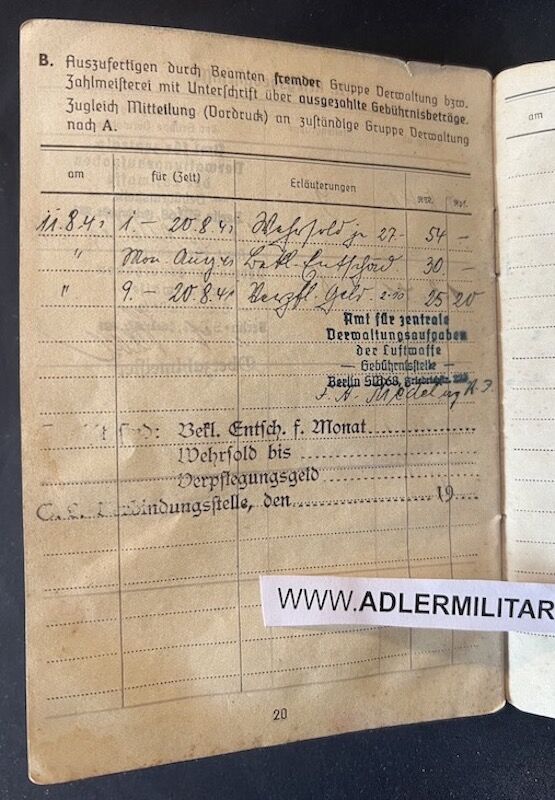 B. Auszufertigen durch Beamten fremder Gruppe Verwaltung bzw.
Zahlmeisterei mit Unterschrift über ausgezahlte Gebührnisbeträge.
Zugleich Mitteilung (Vordruck) an zuständige Gruppe Verwaltung
nach A.
am
am für (Zeit) Erläuterungen RM. Rpf.
11.8.41 1. – 20.8.41 Wehrsold je 27.– 54 –
" Mon Aug 41 Bekl. Entschäd 30 –
" 9. – 20.8.41 Verpfl. Geld 2.10 25 20
Amt für zentrale
Verwaltungsaufgaben
der Luftwaffe
– Gebührnisstelle –
Berlin SW 68, Friedrichstr.
Bekl. Entsch. f. Monat
Wehrsold bis
Verpflegungsgeld
bindungsstelle, den 19
WWW.ADLERMILITAR
20